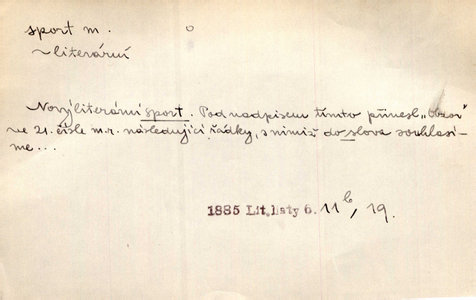 sport m.
~literární
Nový literární sport. Pod nadpisem tímto přinesl „Obzor“
ve 21. čísle m. r. následující řádky, s nimiž do slova souhlasí-
me...
1885 Lit. listy 6. 11b, 19.